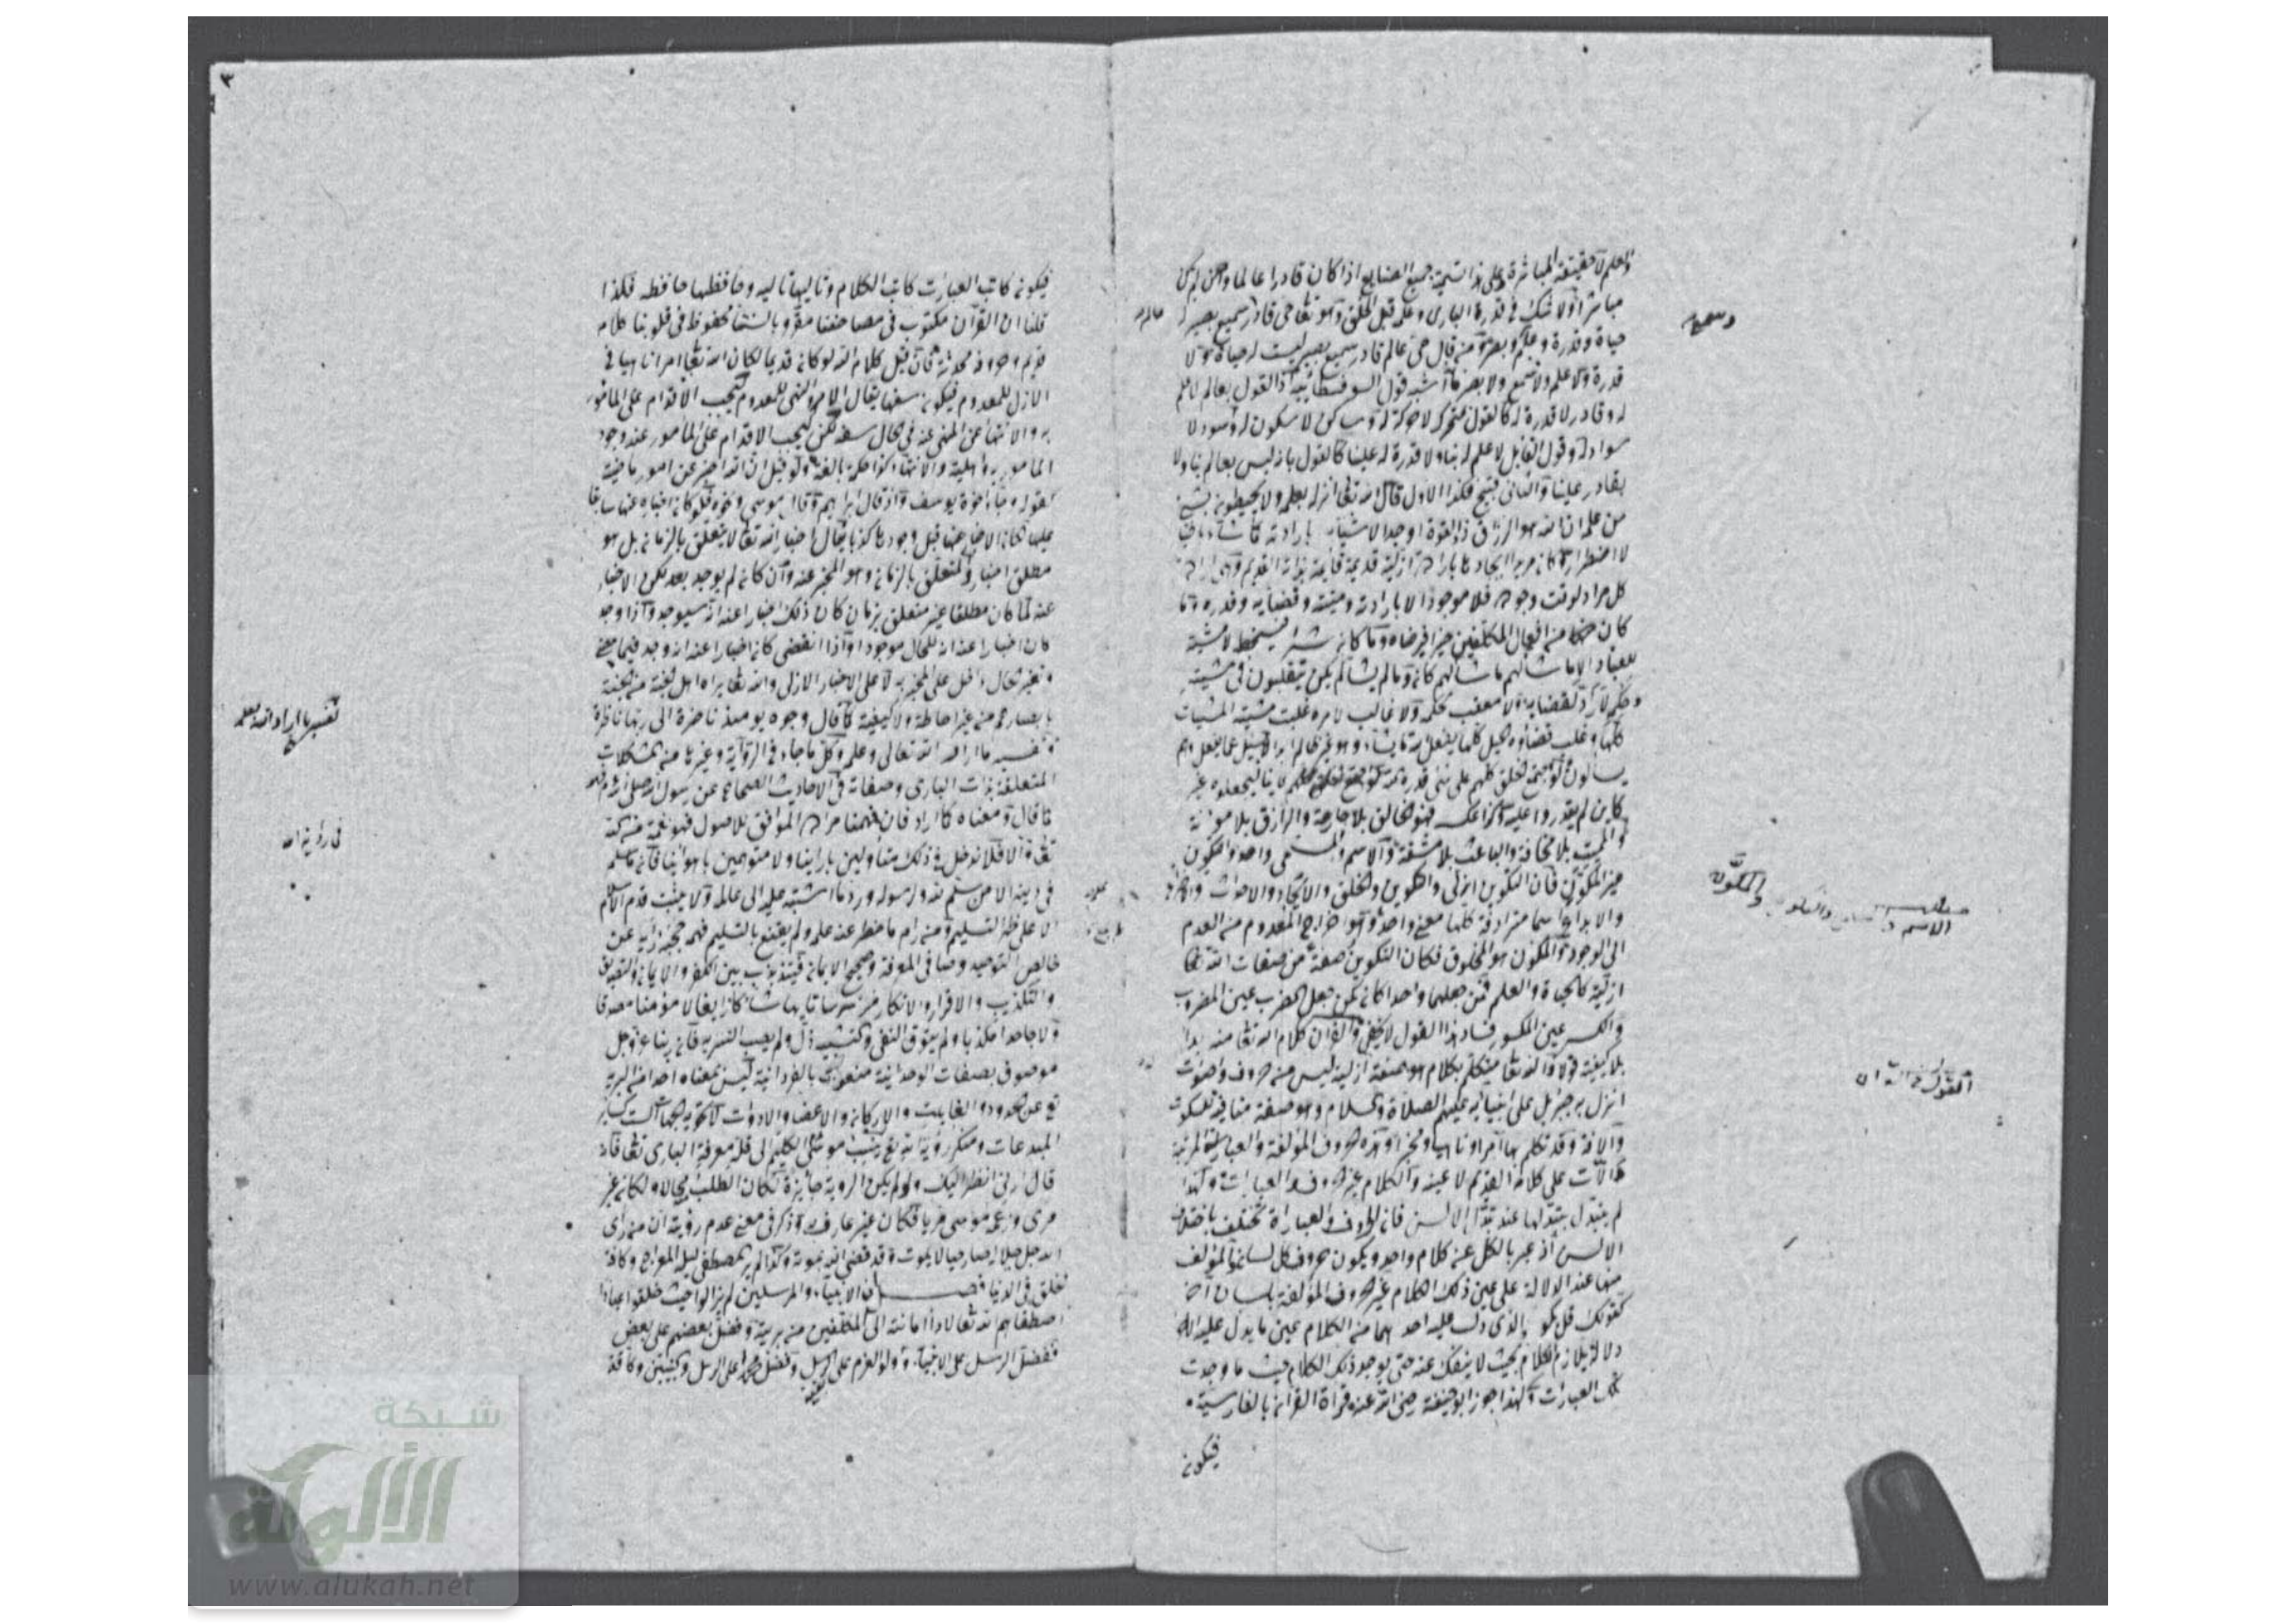 والعلم لا حقيقة المباشرة وعلى هذا تسمية جميع الصنايع اذا كان قادرا عالما وان لم يكن
مباشرا ولا شك في قدرة البارى وعلمه قبل الخلق وهو تعالى حى قادر سميع بصير له
حياة وقدرة وعلم وبصر ومن قال حى عالم قادر سميع بصير ليست له حياة ولا
قدرة ولا علم ولا سمع ولا بصر فما اشبه قول السوفسطائية اذ القول بعالم لا علم
له وقادر لا قدرة له كالقول بمتحرك لا حركة له وساكن لا سكون له واسود لا
سواد له وقول القايل لا علم له بنا ولا قدرة له علينا كالقول بانه ليس بعالم بنا ولا
بقادر علينا والثانى قبيح فكذا الاول قال الله تعالى انزله بعلمه ولا يحيطون بشئ
من علمه ان الله هو الرزاق ذو القوة اوجد الاشياء بارادته كما شاء
لا اضطرارا كان مريدا ايجادها بارادة ازلية قديمة قايمة بذات القديم
كل مراد لوقت وجوده فلا موجود الا بارادته ومشيته وقضايه وقدره وما
كان من افعال المكلفين خيرا فيرضاه وما كان شرا فيسخط لا مشية
للعباد الا ما شاء لهم ما شاء لهم كان وما لم يشا لم يكن يتقلبون فى مشيته
وحكمه لا راد لقضايه ولا معقب لحكمه ولا غالب لامره غلبت مشيته المشيات
كلها وغلب قضاؤه الحيل كلها يفعل الله ما يشاء وهو غير ظالم ابدا لا يسئل عما يفعل وهم
يسألون ولو اجتمع الخلق كلهم على شئ قدره الله
كاين لم يقدروا عليه وكذا عكسه فهو الخالق بلا جارحة والرازق بلا مؤنة
والمميت بلا مخافة والباعث بلا مشقة والاسم والمسمى واحد والتكوين
غير المكون فان التكوين ازلى والتكوين والخلق والايجاد والاحداث
والابداع اسما مترادفة كلها معنى واحد وهو اخراج المعدوم من العدم
الى الوجود والمكون هو المخلوق فكان التكوين صفة من صفات الله تعالى
ازلية كالحياة والعلم فمن جعلهما واحدا كان كمن جعل الضرب عين المضروب
والكسر عين المكسور وفساد هذا القول لا يخفى والقران كلام الله تعالى منه بدا
بلا كيفية قولا والله تعالى متكلم بكلام هو صفة ازلية ليس من حروف واصوت
انزل به جبريل على انبيائه عليهم الصلاة والسلام وهو صفة منافية للسكوت
والافة وقد تكلم بها آمرا وناهيا ومخبرا وهذه الحروف المؤلفة والعبارات المرتبة
دلالات على كلامه القديم لا عينه والكلام غير الحروف والعبارات ولهذا
لم يتبدل بتبدلها عند تبدل الالسن فان الحروف والعبارة تختلف باختلاف
الالسن اذ عبر بالكل عن كلام واحد ويكون حروف كل لسان المؤلف
منها عند الدلالة على عين ذلك الكلام غير الحروف المؤلفة بلسان آخر
الذى دل عليه احدهما من الكلام عين ما يدل عليه الآخر
دلالة يلازم الكلام بحيث لا ينفك عنه حتى يوجد ذلك الكلام حيث ما وجدت
تلك العبارات ولهذا جوز ابو حنيفة رضى الله عنه قراة القران بالفارسية
فيكون
وسمع
والمكون
الاسم
القول فى القران
فيكون كاتب العبارت كاتب الكلام وتاليها تاليه وحافظها حافظه فكذا
قلنا ان القرآن مكتوب فى مصاحفنا مقرو بالسنتنا محفوظ فى قلوبنا كلام
قديم وحروفه محدثة فان قيل كلام الله لو كان قديما لكان الله تعالى امرا ناهيا فى
الازل للمعدوم فيكون سفها يقال الامر والنهى للمعدوم ليجب الاقدام على المامور
به والانتهاء عن المنهى عنه فى الحال سفه لكن ليجب الاقدام على المامور عند وجود
المامور به واهليته والانتهاء كذا حكمة بالغة ولو قيل ان الله اخبر عن امور ماضية
كقوله وجاء اخوة يوسف واذ قال ابراهيم وقال موسى ونحوه فلو كان اخباره عنها سابقا
عليها لكان الاخبار عنها قبل وجودها كذبا يقال اخبار الله تعالى لا يتعلق بالزمان بل هو
مطلق اخبار والمتعلق بالزمان وهو المخبر عنه وان كان لم يوجد بعد لكن الاخبار
عنه لما كان مطلقا غير متعلق بزمان كان ذلك اخبارا عنه انه سيوجد واذا وجد
كان اخبارا عنه انه للحال موجودا واذا انقضى كان اخبارا عنه انه وجد فيما مضى
والتغير داخل على المخبر به لا على الاخبار الازلى والله تعالى يراه اهل الجنة من الجنة
بابصارهم من غير احاطة ولا كيفية كما قال وجوه يومئذ ناضرة الى ربها ناظرة
وتفسير ما اراد الله تعالى وعلمه وكل ما جاء فى الرواية وغيرها من المشكلات
المتعلقة بذات البارى وصفاته فى الاحاديث الصحاح عن رسول الله صلى الله
كما قال ومعناه كما اراد فان فهمنا مراده الموافق للاصول فهو نعمة منه
والا فلا ندخل فى ذلك متاولين باراينا ولا متوهمين باهوائنا فانه ما سلم
فى دينه الا من سلم لله ولرسوله ورد ما اشتبه عليه الى عالمه ولا يثبت قدم الاسلام
الا على ظهر التسليم فمن رام ما حظر عنه علمه ولم يقنع بالتسليم فهمه حجبه رايه عن
خالص التوحيد وصافى المعرفة وصحيح الايمان فيتذبذب بين الكفر والايمان والتصديق
والتكذيب والاقرار والانكار موسوسا تايها شاكا زايغا لا مؤمنا مصدقا
ولا جاحدا مكذبا ولم يتوق النفى والتشبيه زل ولم يصب التنزيه فان ربنا عز وجل
موصوف بصفات الوحدانية منعوت بالفردانية ليس بمعناه احد من البرية
تع عن الحدود والغايات والاركان والاعضا والادوات لا تحويه الجهات الست كساير
المبدعات ومنكر رؤية الله تع ينسب موسى الكليم الى قلة معرفة البارى تعالى فانه
قال ارنى انظر اليك ولو لم يكن الروية جايزة لكان الطلب محالا ولكان غير
مرى وزعمه موسى مريا فكان غير عارف به وذكر فى معنى عدم رؤيته ان من راى
الله جل جلاله صار حيا لا يموت وقد قضى الله بموته وكذا لم ير المصطفى ليلة المعراج وكافة
الخلق فى الدنيا فصـــــل فى الانبياء والمرسلين لم يزالوا حيث خلقوا عبادا
اصطفاهم الله تعالى لاداء امانته الى المكلفين من بريته وفضل بعضهم على بعض
ففضل الرسل على الانبياء واولو العزم على الرسل وفضل محمدا على الرسل والنبيين وكافة
تفسير ما اراد الله بعلمه
فى رؤية الله
٣
شبكة
الألوكة
www.alukah.net